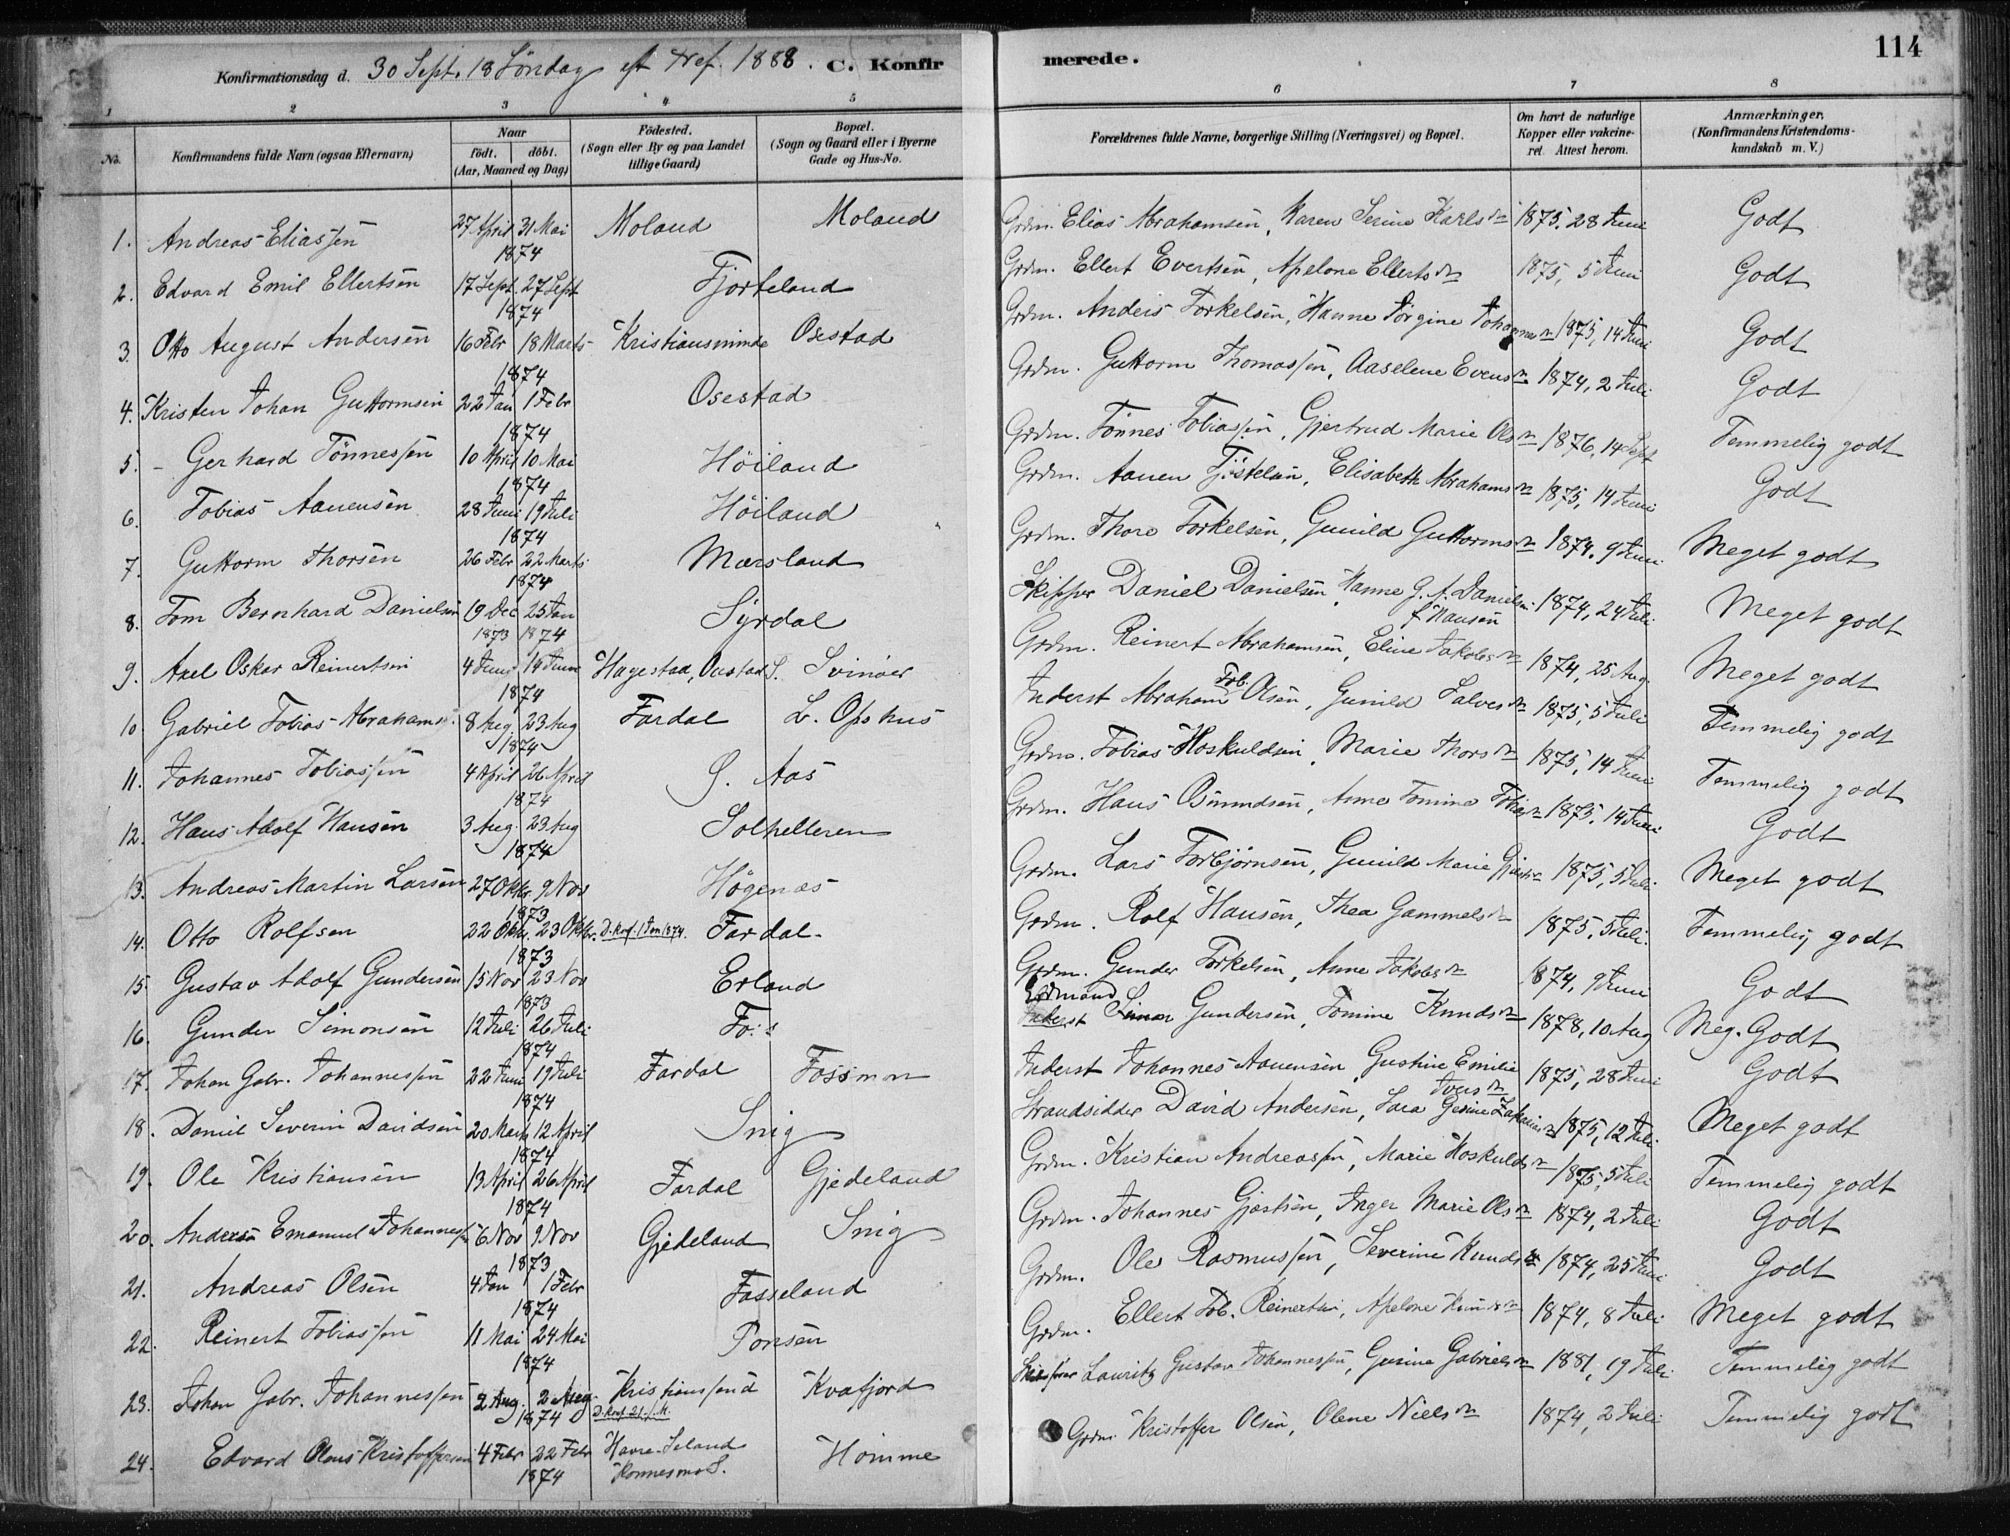 114
Konfirmationsdag d. 30 Sept. 18 Söndag eft Tref. 1888. C. Konfirmerede.
1 2 3 4 5 6 7 8
No. Konfirmandens fulde Navn (ogsaa Efternavn) Naar födt. döbt. (Aar, Maaned og Dag) Födested. (Sogn eller By og paa Landet tillige Gaard) Bopæl. (Sogn og Gaard eller i Byerne Gade og Hus-No. Forældrenes fulde Navne, borgerlige Stilling (Næringsvei) og Bopæl. Om havt de naturlige Kopper eller vakcineret. Attest herom. Anmærkninger. (Konfirmandens Kristendomskundskab m. V.)
1. Andreas Eliassen 27 April 31 Mai 1874 Moland Moland Grdm. Elias Abrahamsen, Karen Serine Karlsdn 1875, 28 Juni Godt
2. Edvard Emil Ellertsen 17 Sept. 27 Sept 1874 Fjorteland Grdm. Ellert Evertsen, Apelone Ellertsdn 1875, 5 Juni Godt
3. Otto August Andersen 16 Febr 18 Marts 1874 Kristiansminde Osestad Grdm. Anders Torkelsen, Hanne Jörgine Johannesdn 1875, 14 Juni Godt
4. Kristen Johan Guttormsen 22 Jan 1 Febr 1874 Osestad Grdm. Guttorm Thomassen, Aaselene Evensdn 1874, 2 Juli Godt
5. Gerhard Tönnessen 10 April 10 Mai 1874 Höiland Grdm. Tönnes Tobiassen, Gjertrud Marie Olsdn 1876, 14 Sept Temmelig godt
6. Tobias Aanensen 28 Juni 19 Juli 1874 Höiland Grdm. Aanen Tjöstelsen, Elisabeth Abrahamsdn 1875, 14 Juni Godt
7. Guttorm Thorsen 26 Febr 22 Marts 1874 Mærsland Grdm. Thore Torkelsen, Gunild Guttormsdn 1874, 9 Juni Meget godt
8. Tom Bernhard Danielsen 19 Dec 1873 25 Jan 1874 Syrdal Skipper Daniel Danielsen, Hanne G. A. Danielsen f. Hansen 1874, 24 Juli Meget godt
9. Axel Oskar Reinertsen 4 Juni 14 Juni 1874 Hagestad, S. Svinöer Grdm. Reinert Abrahamsen, Eline Jakobsdn 1874, 25 Aug. Meget godt
10 Gabriel Tobias Abrahamsen 8 Aug. 23 Aug 1874 Fardal L. Opshus Inderst Abraham Tob. Olsen, Gunild Salvesdn 1875, 5 Juli Temmelig godt
11. Johannes Tobiassen 4 April 26 April 1874 G. Aas Grdm. Tobias Hoskuldsen, Marie Thorsdn 1875, 14 Juni Temmelig godt
12. Hans Adolf Hansen 3 Aug. 23 Aug 1874 Solhelleren Grdm. Hans Osmundsen, Anne Tomine Tobiasdn 1875, 14 Juni Godt
13. Andreas Martin Larsen 27 Oktbr 9 Nov 1873 Högenæs Grdm. Lars Torbjörnsen, Gunild Marie 1875, 5 Juli Meget godt
14. Otto Rolfsen 22 Okt. 23 Oktbr. 1873 D. kref. 1 Jan 1874. Fardal Grdm. Rolf Hansen, Thea Gammelsdn 1875, 5 Juli. Temmelig godt
15. Gustav Adolf Gundersen 15 Nov 23 Nov 1873 Erland Grdm. Gunder Torkelsen, Anne Jakobsdn 1874, 9 Juni Godt
16. Gunder Simonsen 12 Juli 26 Juli 1874 Fo:s Simon Gundersen, Tomine Knudsdn 1878, 10 Aug Meg. Godt
17. Johan Gabr. Johannessen 22 Juni 19 Juli 1874 Fardal Fossmon Inderst Johannes Aanensen, Gustine Emilie Iversdn 1875, 28 Juni Godt
18. Daniel Severin Davidsen 20 Marts 12 April 1874 Snig Strandsidder David Andersen, Sara Gesine Zakariasdn 1875, 12 Juli Meget godt
19. Ole Kristiansen 13 April 26 April 1874 Fardal Gjedeland Grdm. Kristian Andreassen, Marie Hoskuldsdn 1875, 5 Juli Temmelig godt
20. Anders Emanuel Johannessen 6 Nov 9 Nov 1873 Gjedeland Snig Grdm. Johannes Gjertsen, Inger Marie Olsdn 1874, 2 Juli Godt
21. Andreas Olsen 4 Jan 1 Febr 1874 Fasseland Grdm. Ole Rasmussen, Severine Knudsdn 1874, 25 Juni Godt
22. Reinert Tobiassen 11 Mai 24 Mai 1874 Ponsen Grdm. Ellert Tob. Reinertsen, Apelone 1874, 8 Juli Meget godt
23. Johan Gabr. Johannessen 2 Aug. 2 Aug. 1874 Kristianssund Kvafjord Skipper Lauritz Gustav Johannessen, Gusine Gabrielsdn 1881, 19 Juli Temmelig godt
24. Edvard Olaus Kristoffersen 4 Febr 22 Febr 1874 Havre-Seland Konnesmo S. Homme Grdm Kristoffer Olsen, Olene Nielsdn 1874, 2 Juli Temmelig godt